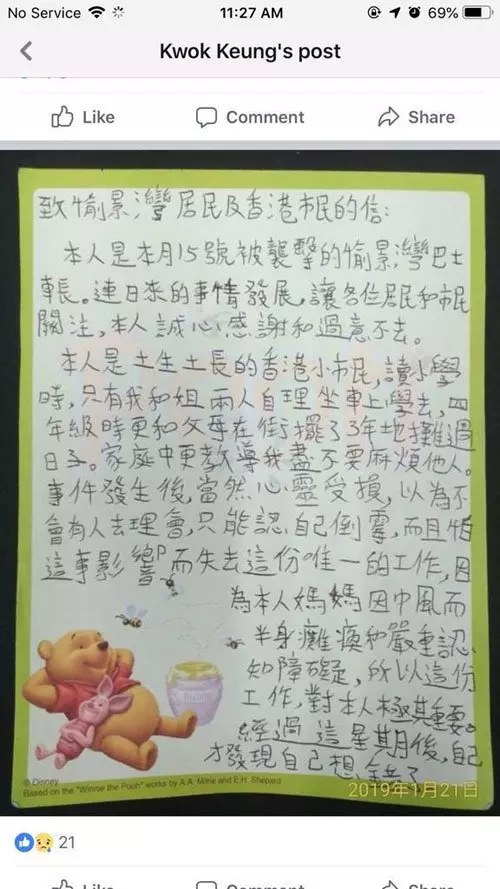 No Service
11:27 AM
69%
Kwok Keung's post
Like
Comment
Share
致愉景灣居民及香港市民的信:
本人是本月15號被襲擊的愉景灣巴士
車長。連日來的事情發展,讓各位居民和市民
關注,本人誠心感謝和過意不去。
本人是土生土長的香港小市民,讀小學
時,只有我和姐兩人自理坐車上學去,四
年級時更和父母在街擺了3年地攤過
日子。家庭中更教導我盡不要麻煩他人。
事件發生後,當然心靈受損,以為不
會有人去理會,只能認自己倒霉,而且怕
這事影響而失去這份唯一的工作,因
為本人媽媽因中風而
半身癱瘓和嚴重認
知障礙,所以這份
工作,對本人極其重要。
經過這星期後,自己
才發現自己想錯了
© Disney
Based on the "Winnie the Pooh" works by A.A. Milne and E.H. Shepard
2019年1月21日
21
Like
Comment
Share